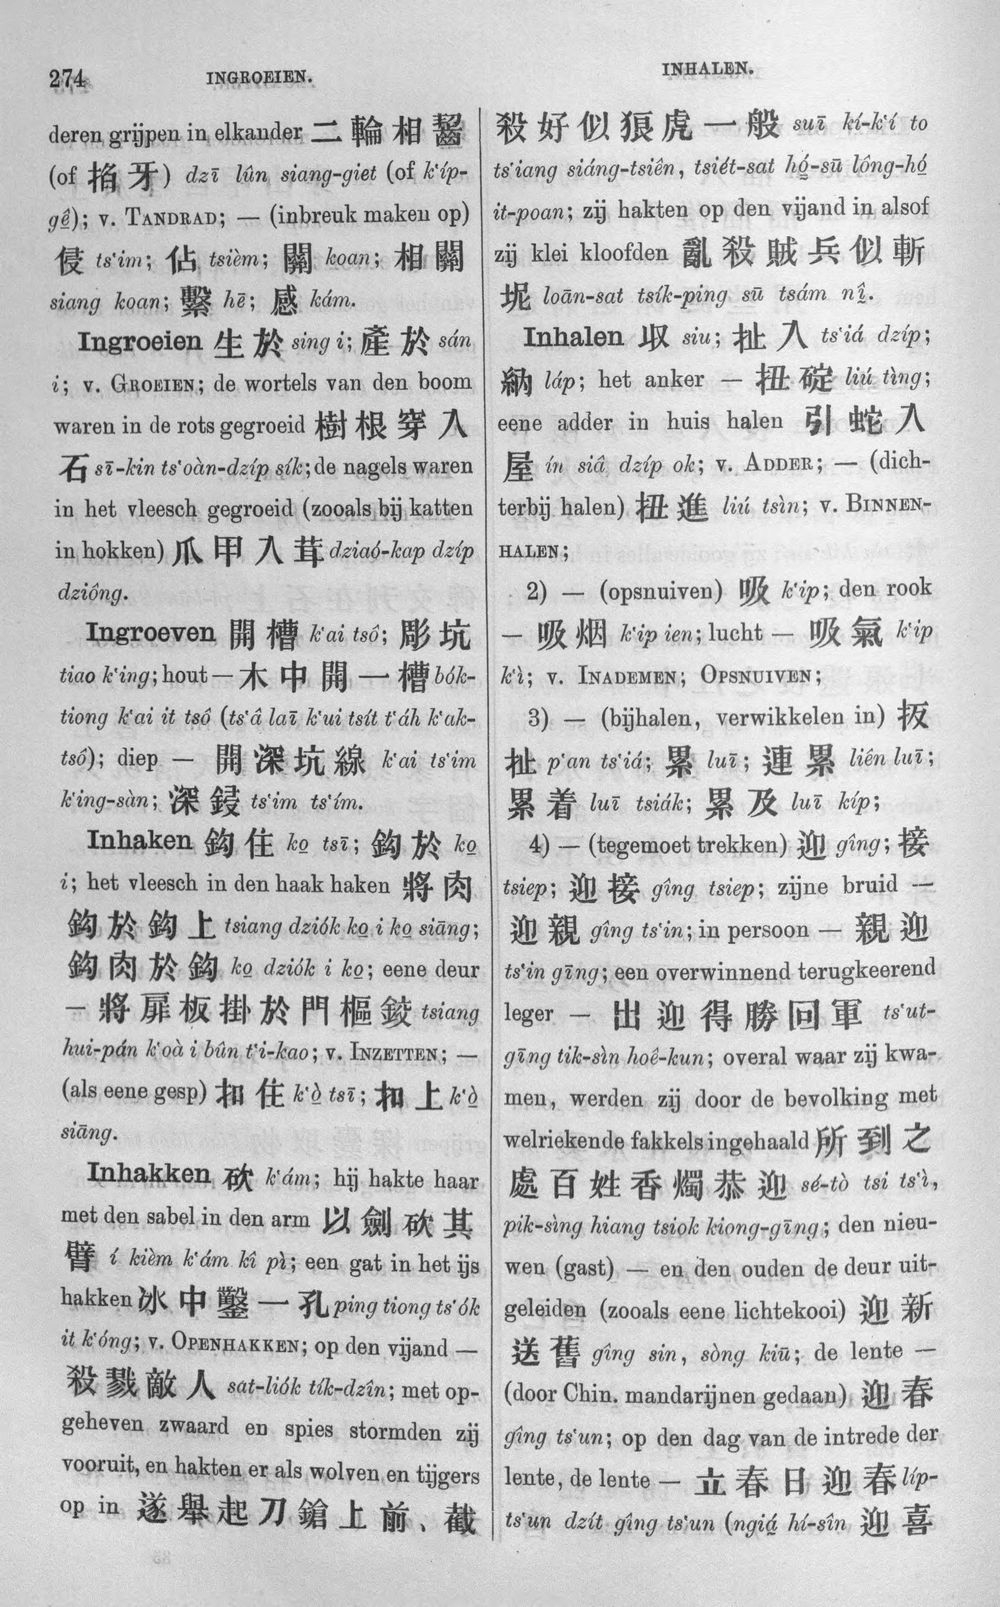 274
INGROEIEN.
INHALEN.
deren grijpen in elkander 二輪相齧
(of 掐牙) dzī lûn siang-giet (of k'íp-
gê); v. TANDRAD; — (inbreuk maken op)
侵 ts'im; 佔 tsièm; 關 koan; 相關
siang koan; 繫 hē; 感 kám.
Ingroeien 生於 sing i; 產於 sán
i; v. GROEIEN; de wortels van den boom
waren in de rots gegroeid 樹根穿入
石 sī-kin ts'oàn-dzíp sík; de nagels waren
in het vleesch gegroeid (zooals bij katten
in hokken) 爪甲入茸 dziaó-kap dzíp
dziông.
Ingroeven 開槽 k'ai tsô; 彫坑
tiao k'ing; hout — 木中開一槽 bók-
tiong k'ai it tsô (ts'â laī k'ui tsít t'áh k'ak-
tsô); diep — 開深坑線 k'ai ts'im
k'ing-sàn; 深鋟 ts'im ts'ím.
Inhaken 鈎住 ko̱ tsī; 鈎於 ko̱
i; het vleesch in den haak haken 將肉
鈎於鈎上 tsiang dziók ko̱ i ko̱ siāng;
鈎肉於鈎 ko̱ dziók i ko̱; eene deur
— 將扉板掛於門樞鉸 tsiang
hui-pán k'oà i bûn t'i-kao; v. INZETTEN; —
(als eene gesp) 扣住 k'ò̱ tsī; 扣上 k'ò̱
siāng.
Inhakken 砍 k'ám; hij hakte haar
met den sabel in den arm 以劍砍其
臂 í kièm k'ám kî pì; een gat in het ijs
hakken 冰中鑿一孔 ping tiong ts'ók
it k'óng; v. OPENHAKKEN; op den vijand —
殺戮敵人 sat-liók tík-dzîn; met op-
geheven zwaard en spies stormden zij
vooruit, en hakten er als wolven en tijgers
op in 遂舉起刀鎗上前、截
殺好似狼虎一般 suī kí-k'í to
ts'iang siáng-tsiên, tsiét-sat hó̱-sū lông-hó̱
it-poan; zij hakten op den vijand in alsof
zij klei kloofden 亂殺賊兵似斬
坭 loān-sat tsík-ping sū tsám nî̱.
Inhalen 収 siu; 扯入 ts'iá dzíp;
納 láp; het anker — 扭碇 liú tìng;
eene adder in huis halen 引蛇入
屋 ín siâ dzíp ok; v. ADDER; — (dich-
terbij halen) 扭進 liú tsìn; v. BINNEN-
HALEN;
2) — (opsnuiven) 吸 k'ip; den rook
— 吸烟 k'ip ien; lucht — 吸氣 k'ip
k'ì; v. INADEMEN; OPSNUIVEN;
3) — (bijhalen, verwikkelen in) 扳
扯 p'an ts'iá; 累 luī; 連累 liên luī;
累着 luī tsiák; 累及 luī kíp;
4) — (tegemoet trekken) 迎 gîng; 接
tsiep; 迎接 gîng tsiep; zijne bruid —
迎親 gîng ts'in; in persoon — 親迎
ts'in gīng; een overwinnend terugkeerend
leger — 出迎得勝回軍 ts'ut-
gīng tik-sìn hoê-kun; overal waar zij kwa-
men, werden zij door de bevolking met
welriekende fakkels ingehaald 所到之
處百姓香燭恭迎 sé-tò tsi ts'ì,
pik-sìng hiang tsiok kiong-gīng; den nieu-
wen (gast) — en den ouden de deur uit-
geleiden (zooals eene lichtekooi) 迎新
送舊 gîng sin, sòng kiū; de lente —
(door Chin. mandarijnen gedaan) 迎春
gîng ts'un; op den dag van de intrede der
lente, de lente — 立春日迎春 líp-
ts'un dzít gîng ts'un (ngiá̱ hí-sîn 迎喜